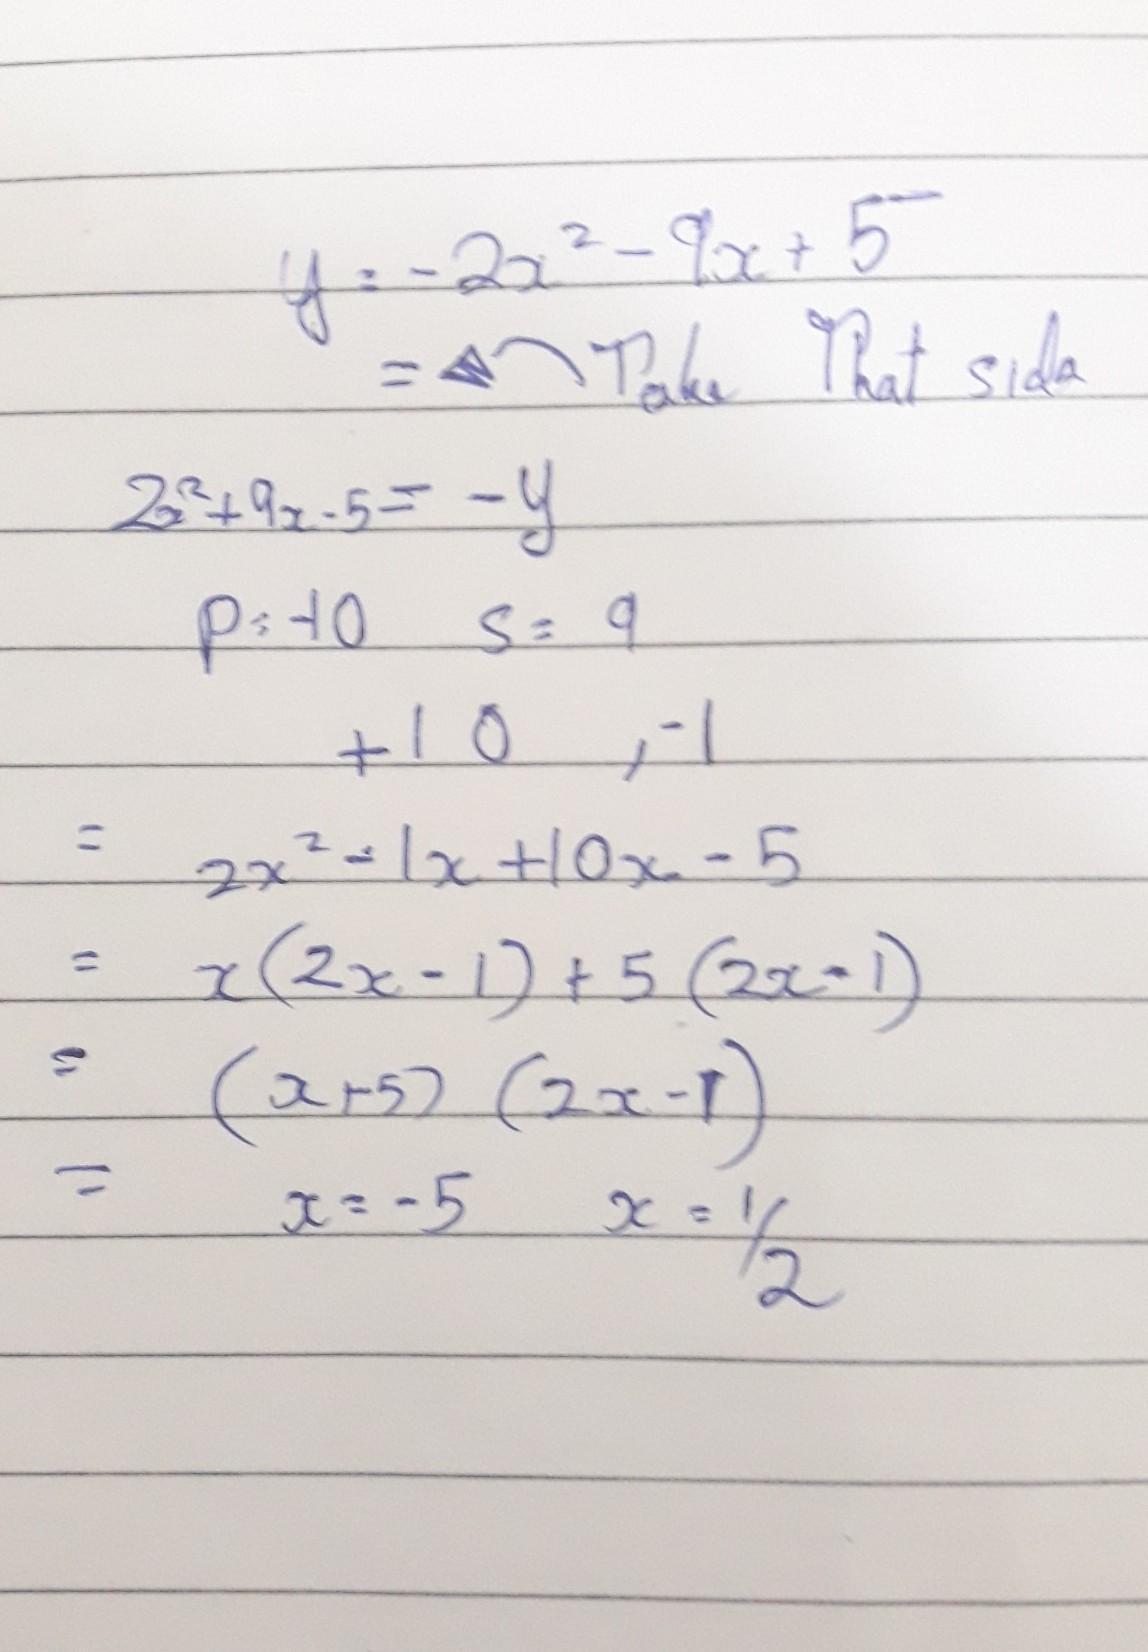 y = -2x² - 9x + 5
= Take That side
2x² + 9x - 5 = -y
P = -10 S = 9
+10 , -1
= 2x² - 1x + 10x - 5
= x(2x - 1) + 5(2x - 1)
= (x + 5) (2x - 1)
= x = -5 x = 1/2